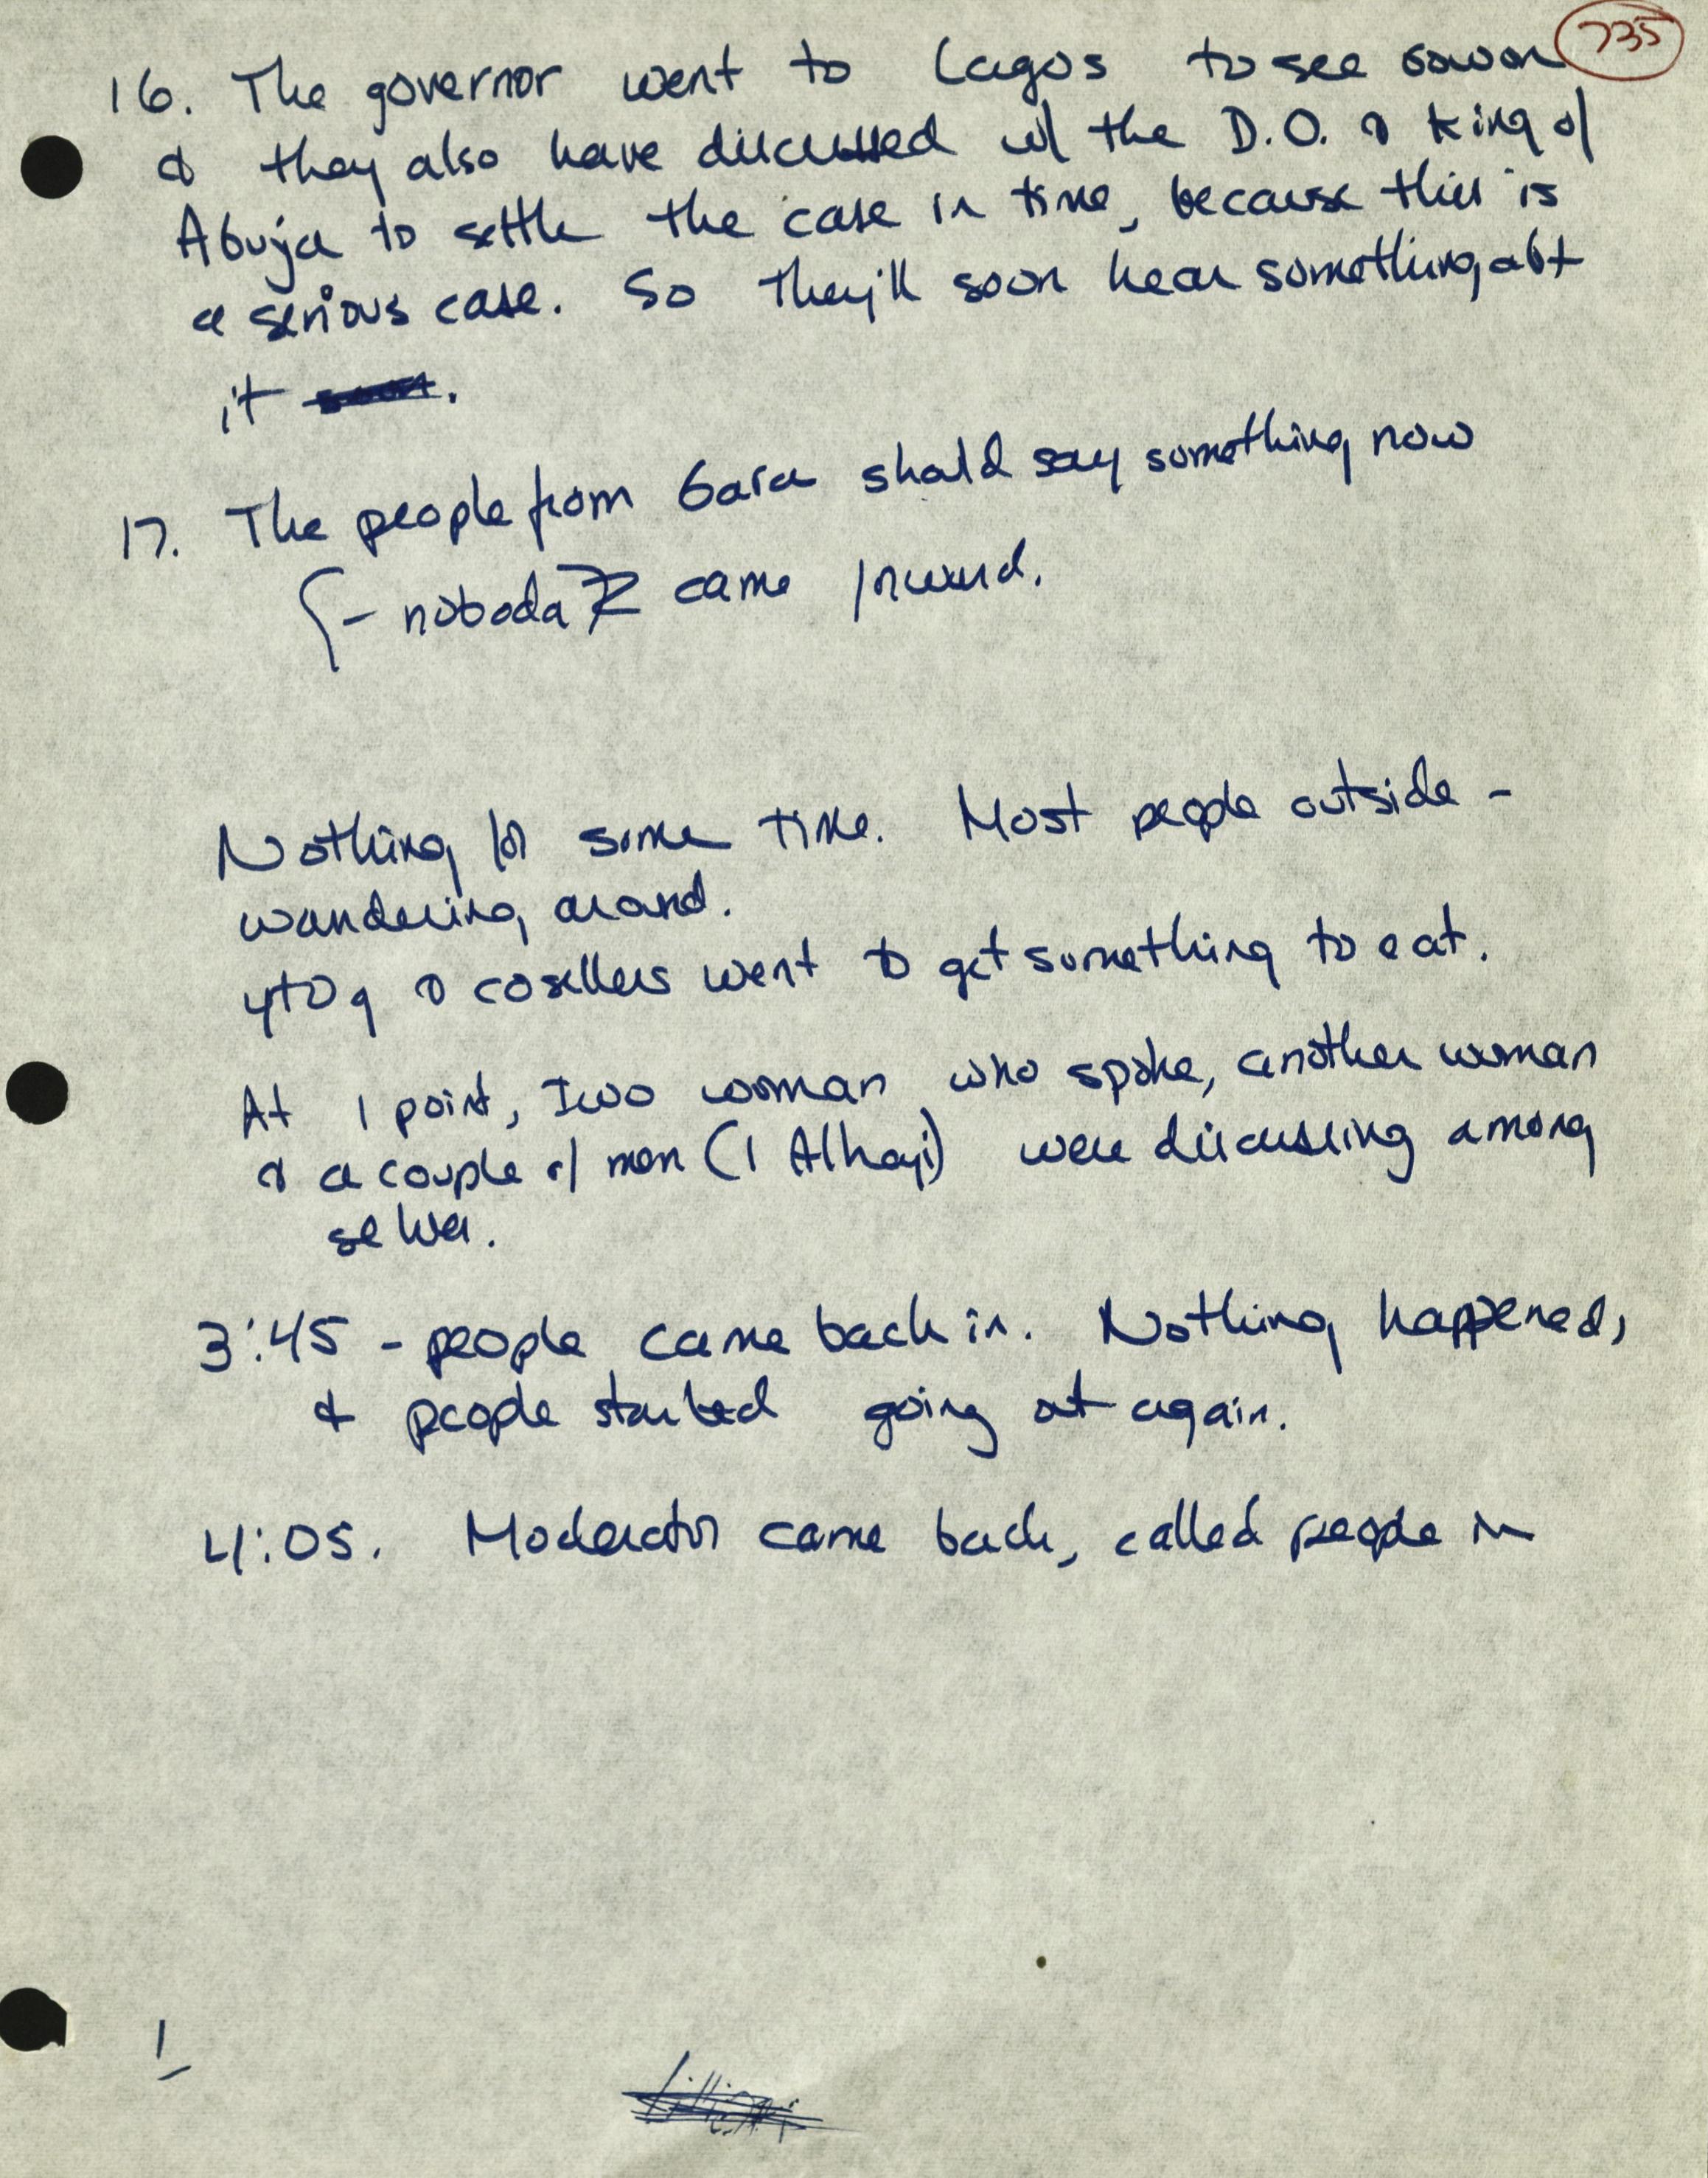 735
16. The governor went to Lagos to see Gowon
& they also have discussed w/ the D.O. & King of
Abuja to settle the case in time, because this is
a serious case. So they'll soon hear something abt
it soon.
17. The people from Gara should say something now
{- nobody came forward.
Nothing for some time. Most people outside -
wandering around.
& cosellers went to get something to eat.
At 1 point, Iwo woman who spoke, another woman
& a couple of men (1 Alhaji) were discussing among
selves.
3:45 - people came back in. Nothing happened,
& people started going out again.
4:05. Moderator came back, called people in
1